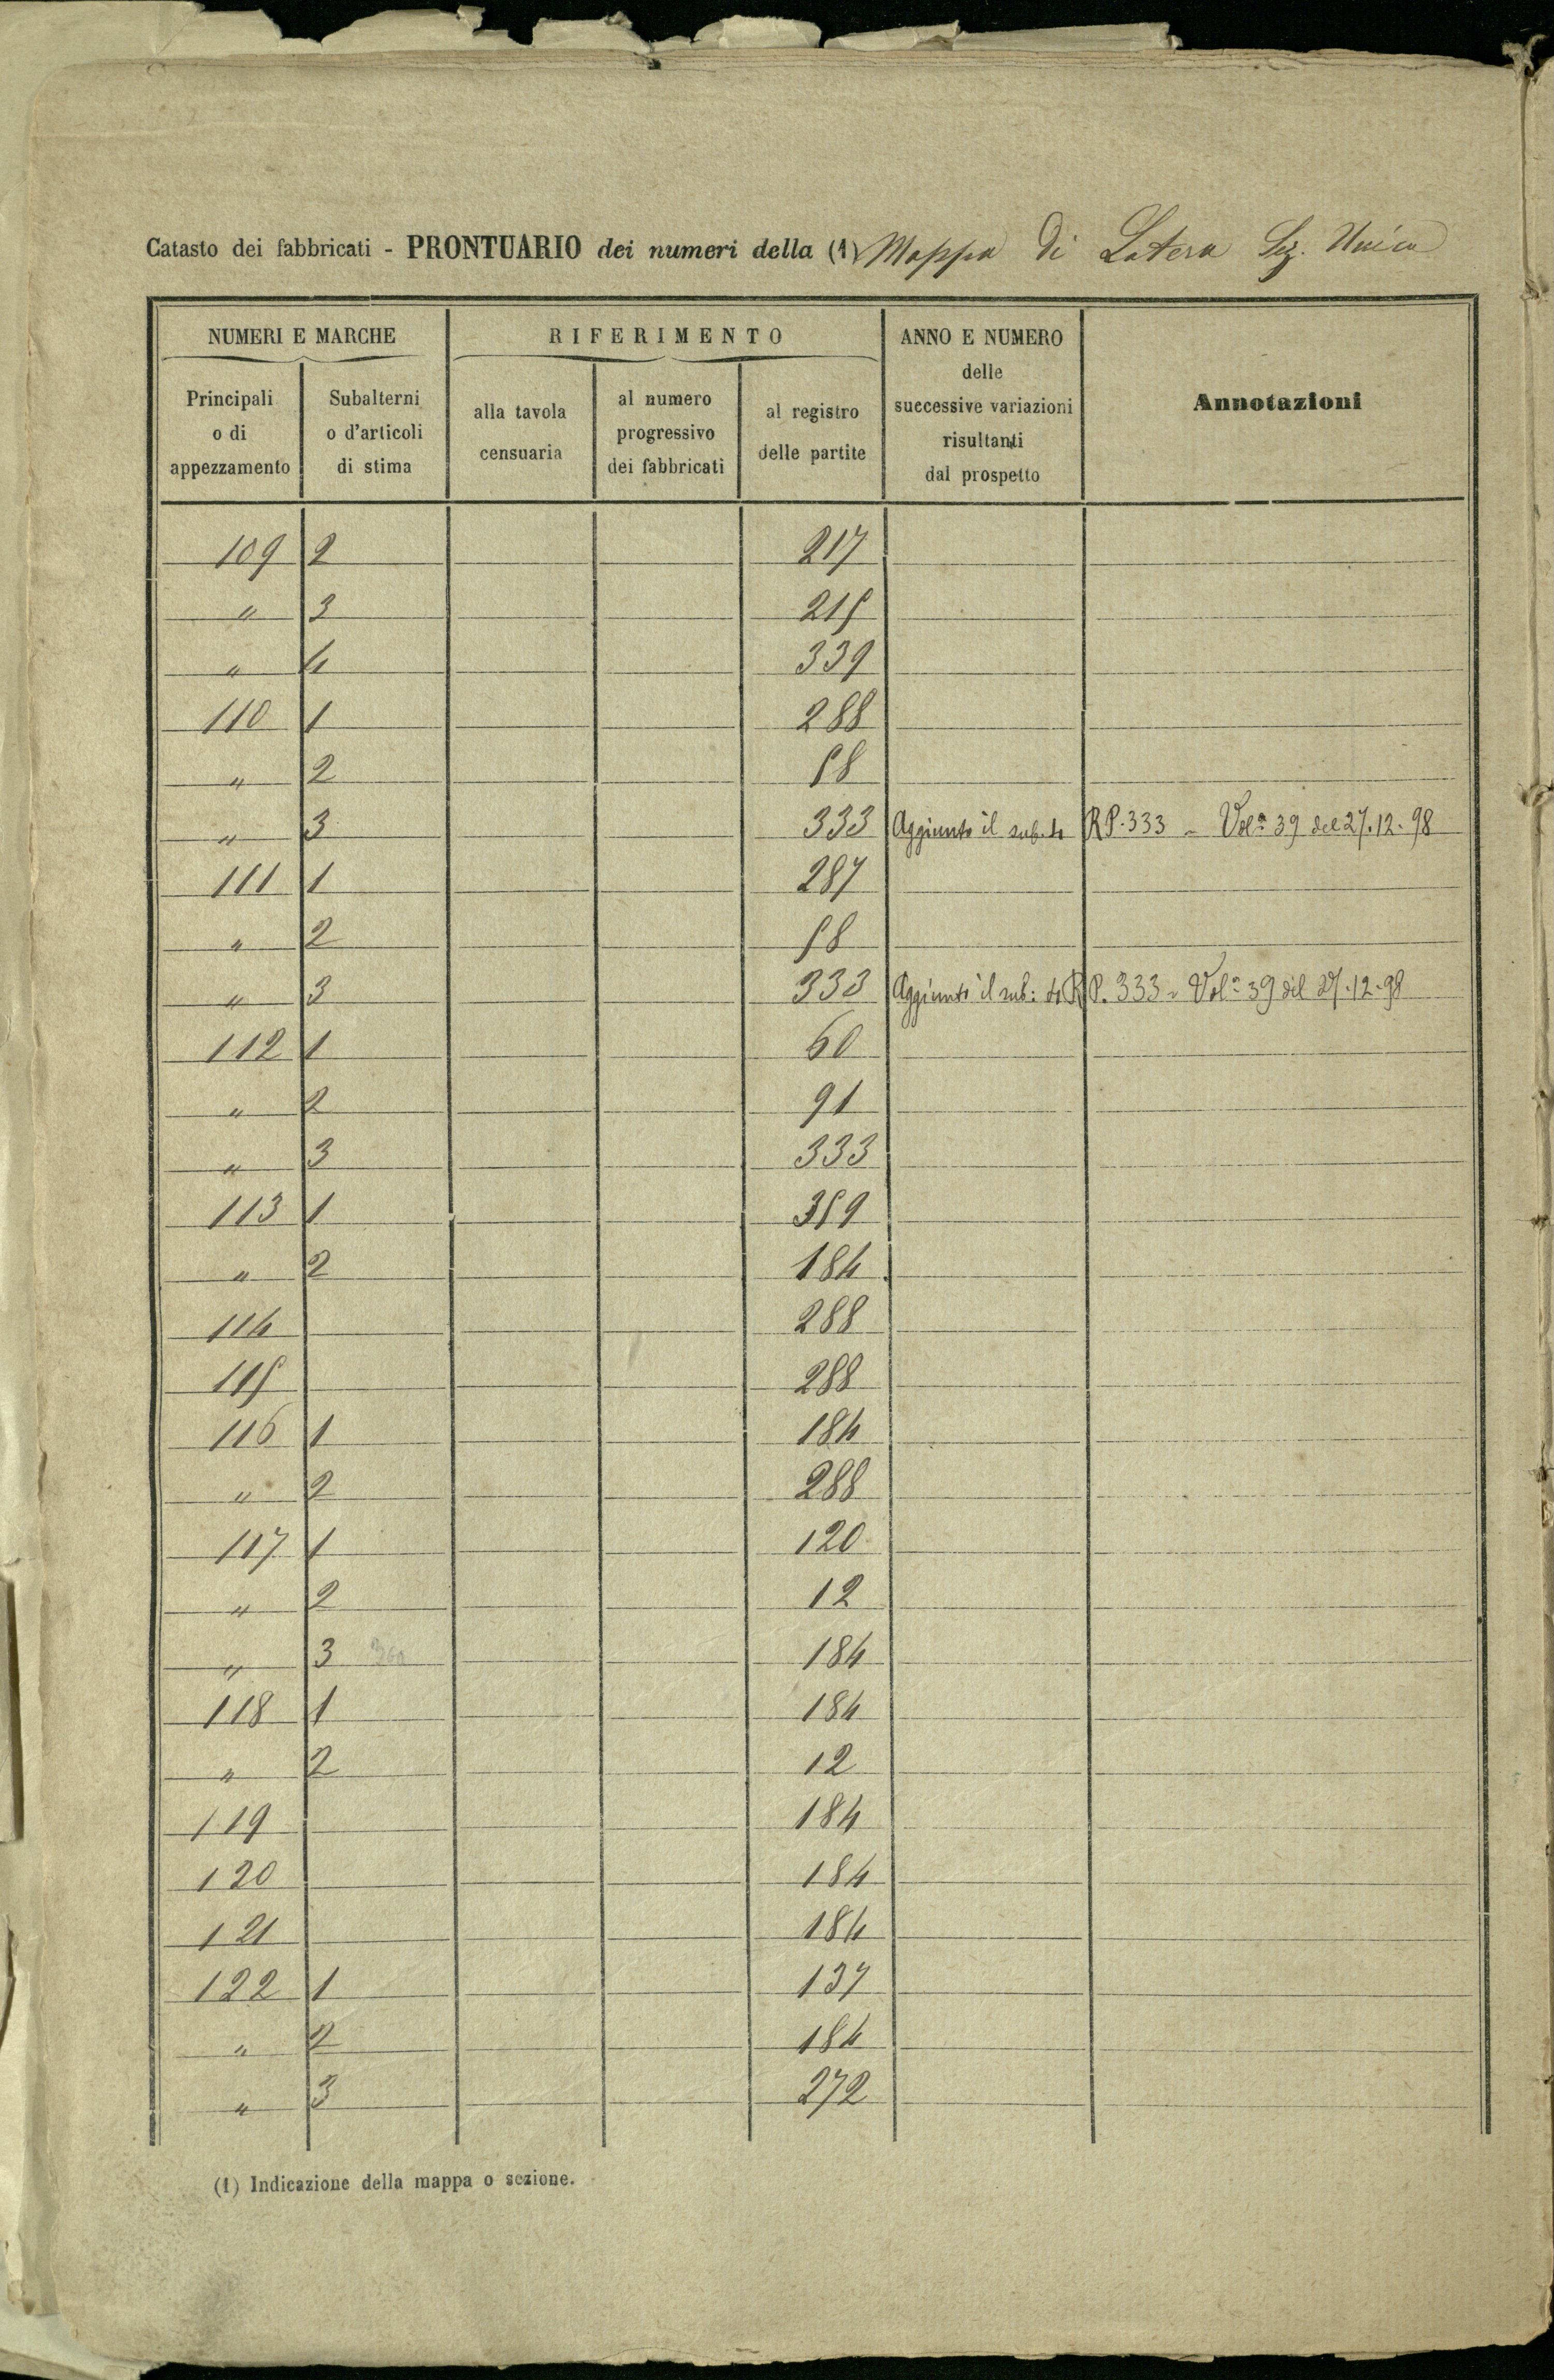 Catasto dei fabbricati - PRONTUARIO dei numeri della (1) Mappa di Latera Sez. Unica
NUMERI E MARCHE
RIFERIMENTO
ANNO E NUMERO
delle
successive variazioni
risultanti
dal prospetto
Annotazioni
Principali
o di
appezzamento
Subalterni
o d'articoli
di stima
alla tavola
censuaria
al numero
progressivo
dei fabbricati
al registro
delle partite
109 2 217
" 3 215
" 4 339
110 1 288
" 2 58
" 3 333 Aggiunto il sub. 4 RP. 333 - Vol.ª 39 del 27.12.98
111 1 287
" 2 58
" 3 333 Aggiunto il sub: 4 RP. 333 - Vol.ª 39 del 27.12.98
112 1 60
" 2 91
" 3 333
113 1 359
" 2 184
114 288
115 288
116 1 184
" 2 288
117 1 120
" 2 12
" 3 184
118 1 184
" 2 12
119 184
120 184
121 184
122 1 137
" 2 184
" 3 272
(1) Indicazione della mappa o sezione.